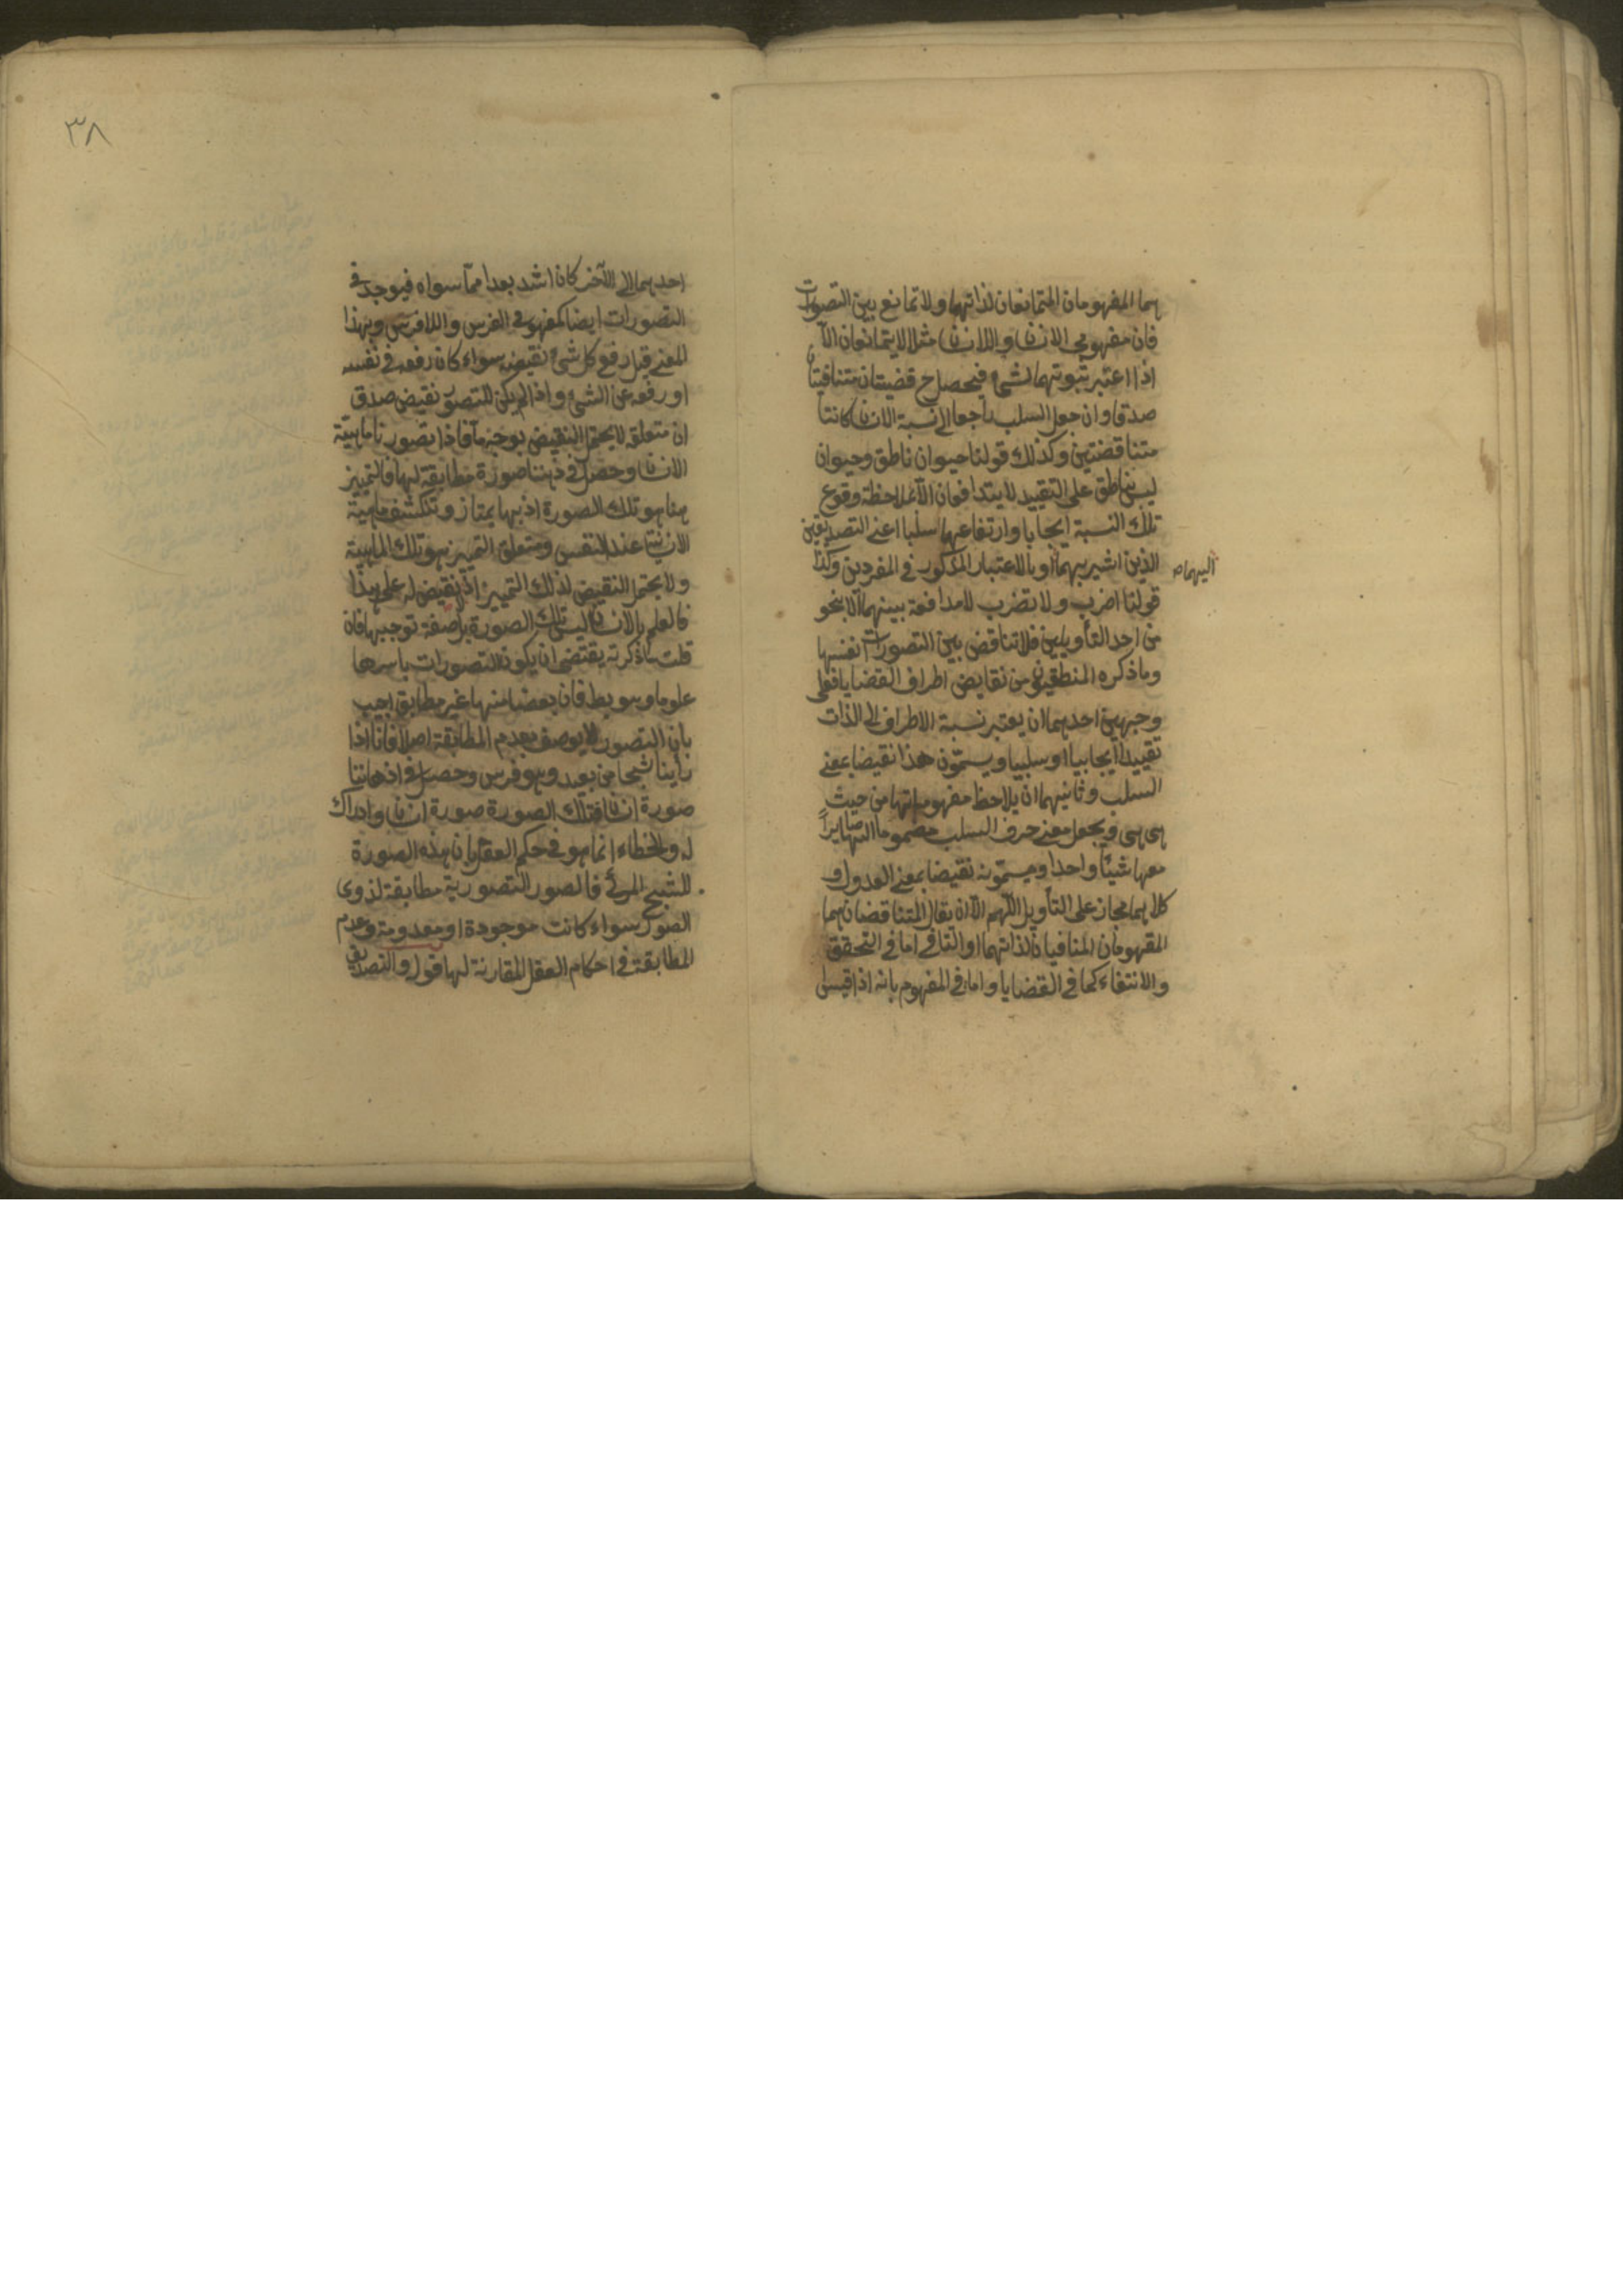 هما المفهومان المتمانعان لذاتهما ولا تمانع بين التصورات
فان مفهومي الانسان واللاانسان مثلا لا يتمانعان الا
اذا اعتبر ثبوتهما لشئ فيحصل ح قضيتان متنافيتان
صدقا وان جعل السلب راجعا الى نسبة الانسان كانتا
متناقضتين وكذلك قولنا حيوان ناطق وحيوان
ليس بناطق على التقييد لا يتدافعان الا بملاحظة وقوع
تلك النسبة ايجابا وارتفاعها سلبا اعنى التصديقين
الذين اشير بهما او بالاعتبار المذكور فى المفردين وكذا
اليهما ص
قولنا اضرب ولا تضرب لا مدافعة بينهما الا بنحو
من احد التأويلين فلا تناقض بين التصورات انفسها
وما ذكره المنطقيون من نقايض اطراف القضايا فعلى
وجهين احدهما ان يعتبر نسبة الاطراف الى الذات
تقييدا ايجابيا او سلبيا ويسمون هذا نقيضا بمعنى
السلب وثانيهما ان يلاحظ مفهوماتها من حيث
هى هى ويجعل معنى حرف السلب مضموما اليها صايرا
معها شيئا واحدا ويسمونه نقيضا بمعنى العدول و
كلاهما مجاز على التأويل اللهم الا ان يقال المتناقضان هما
المفهومان المتنافيان لذاتهما او التنافى اما فى التحقق
والانتفاء كما فى القضايا واما فى المفهوم بانه اذا قيس
٣٨
احدهما الى الآخر كان اشد بعدا مما سواه فيوجد فى
التصورات ايضا كمفهومى الفرس واللافرس وبهذا
المعنى قيل رفع كل شئ نقيضه سواء كان رفعه فى نفسه
او رفعه عن الشئ واذا لم يكن للتصور نقيض صدق
ان متعلقه لا يحتمل النقيض بوجه ما فاذا تصورنا ماهية
الانسان وحصل فى ذهننا صورة مطابقة لها فالتمييز
هنا هو تلك الصورة اذ بها يمتاز وتنكشف ماهية
الانسان عند النفس ومتعلق التمييز هو تلك الماهية
ولا يحتمل النقيض لذلك التمييز اذ لا نقيض له على هذا
فالعلم بالانسان ليس تلك الصورة بل صفة توجبها فان
قلت ما ذكرته يقتضى ان يكون التصورات باسرها
علوما وهو بط فان بعضا منها غير مطابق اجيب
بان التصور لا يوصف بعدم المطابقة اصلا فانا اذا
رأينا شبحا من بعيد وهو فرس وحصل فى اذهاننا
صورة انسان فتلك الصورة صورة انسان وادراك
له والخطاء انما هو فى حكم العقل بان هذه الصورة
للشبح المرئى فالصور التصورية مطابقة لذوى
الصور سواء كانت موجودة او معدومة وعدم
المطابقة فى احكام العقل المقارنة لها قوله والتصديق